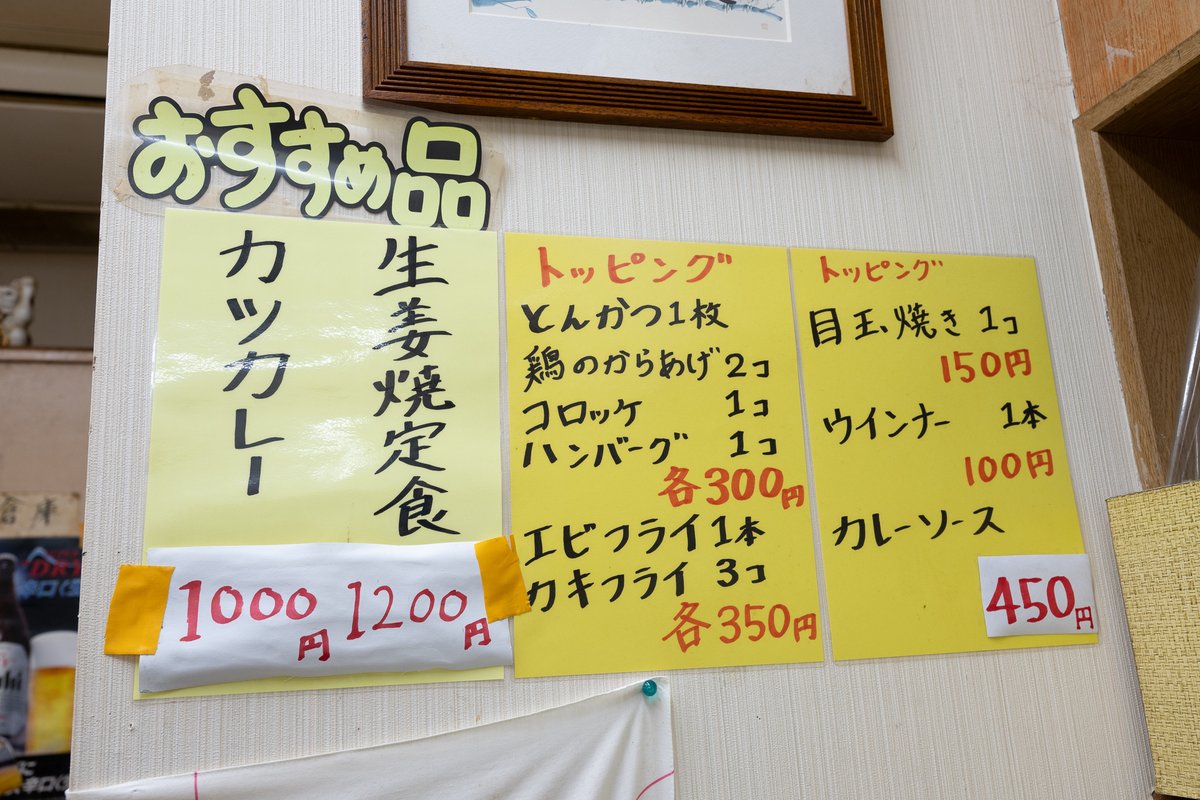 おすすめ品
生姜焼定食
カツカレー
1000円
1200円
トッピング
とんかつ1枚
鶏のからあげ 2コ
コロッケ 1コ
ハンバーグ 1コ
各300円
エビフライ 1本
カキフライ 3コ
各350円
トッピング
目玉焼き 1コ
150円
ウインナー 1本
100円
カレーソース
450円
倉庫
DRY